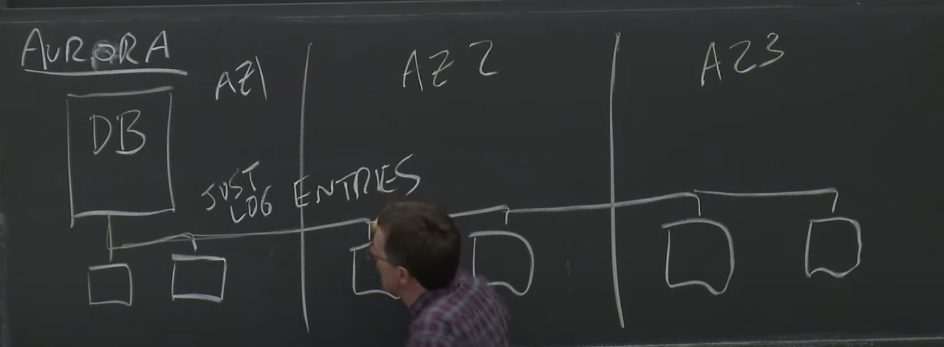 AURORA
AZ1
AZ2
AZ3
DB
JUST
LOG ENTRIES